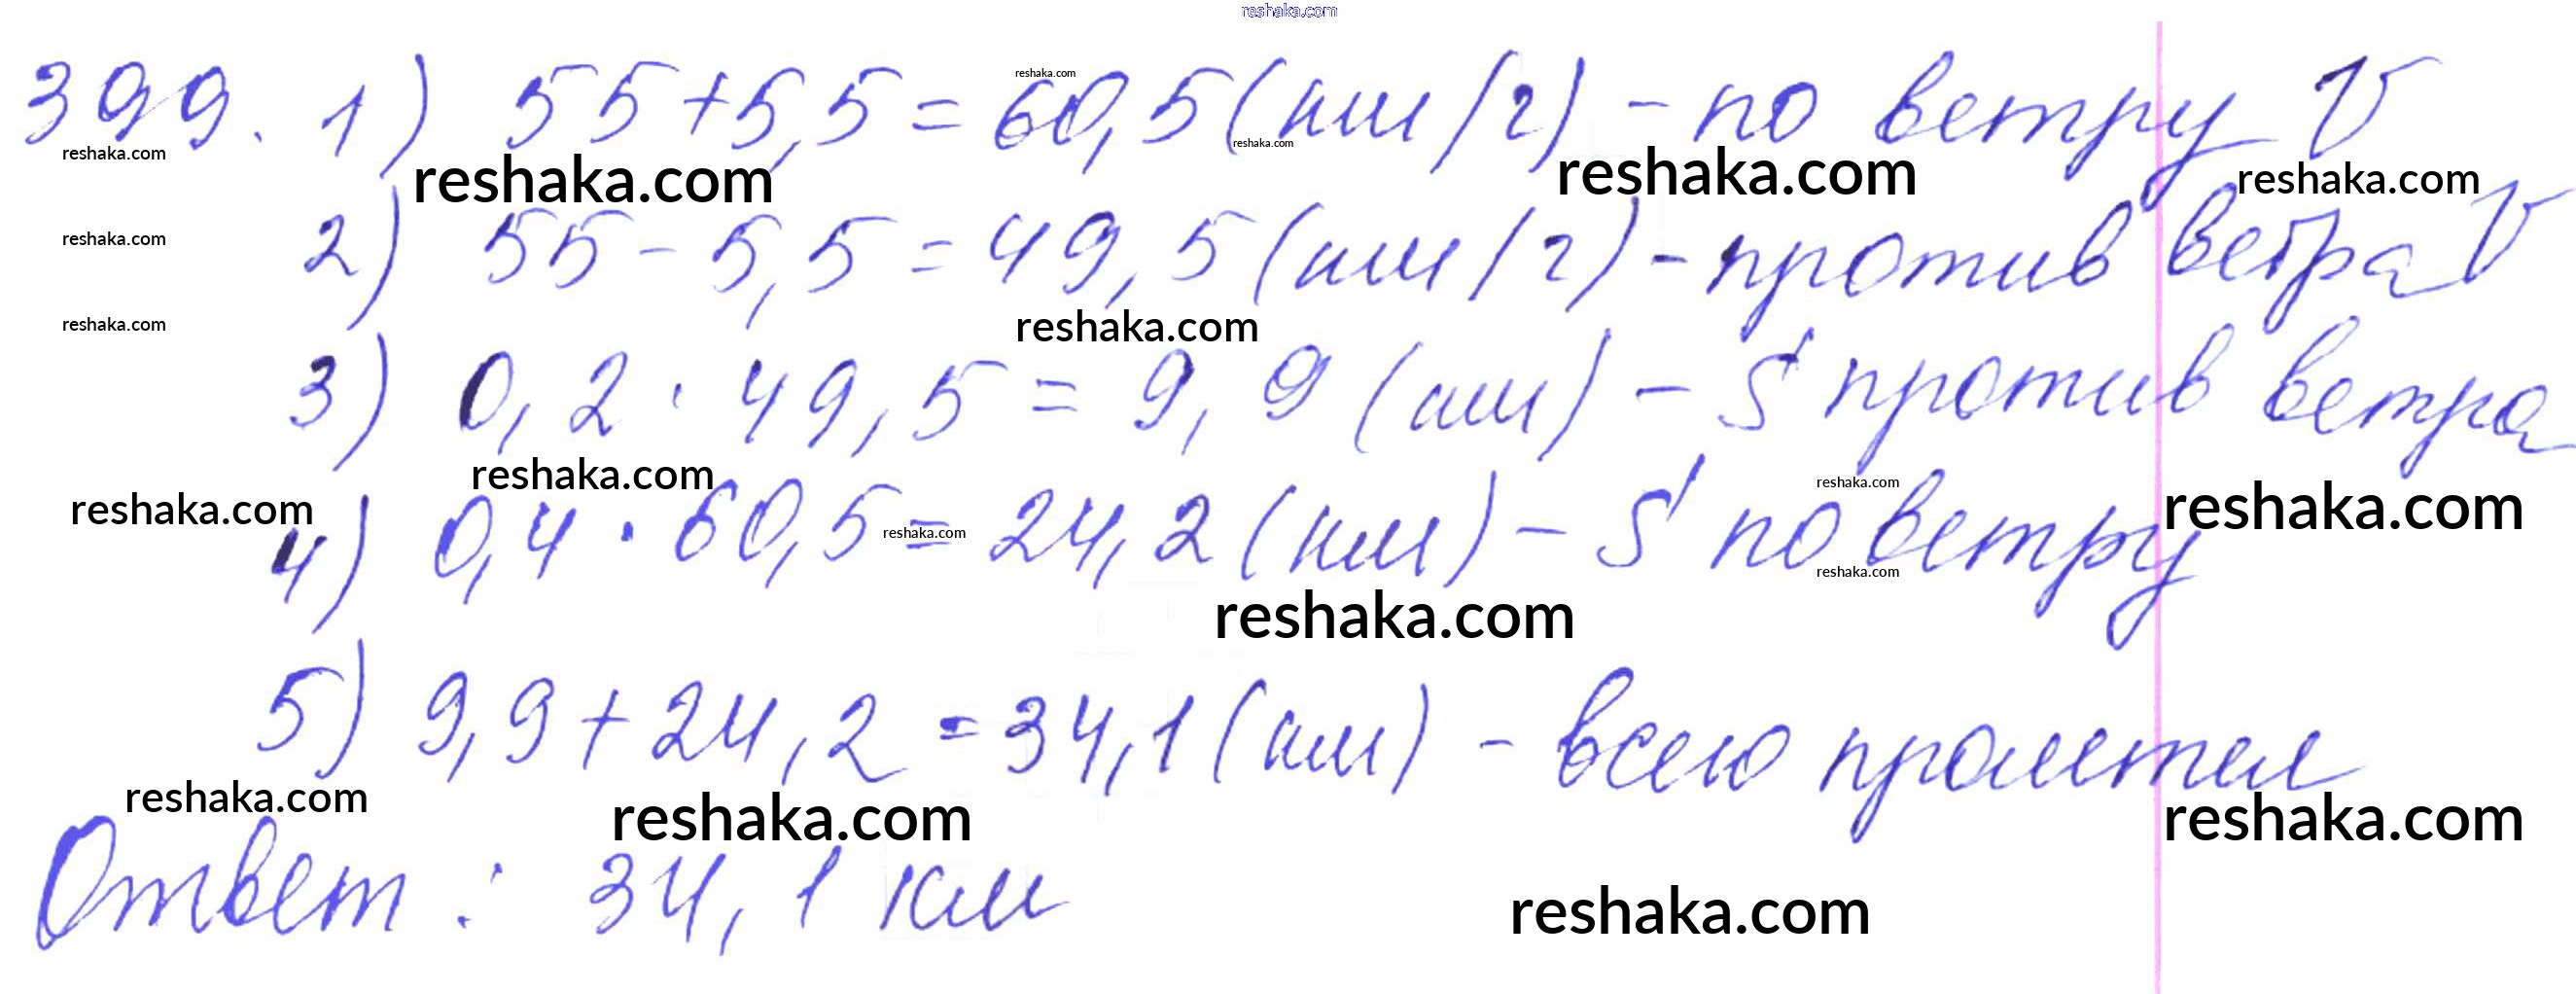 reshaka.com
399. 1) 55+5,5=60,5(км/г) - по ветру V
reshaka.com
reshaka.com
reshaka.com reshaka.com reshaka.com reshaka.com
2) 55-5,5=49,5(км/г) - против ветра V
reshaka.com
reshaka.com reshaka.com
3) 0,2·49,5=9,9(км) - S против ветра
reshaka.com reshaka.com
reshaka.com reshaka.com
4) 0,4·60,5=24,2(км) - S по ветру
reshaka.com
reshaka.com
reshaka.com
5) 9,9+24,2=34,1(км) - всего пролетел
reshaka.com reshaka.com reshaka.com
Ответ: 34,1 км
reshaka.com